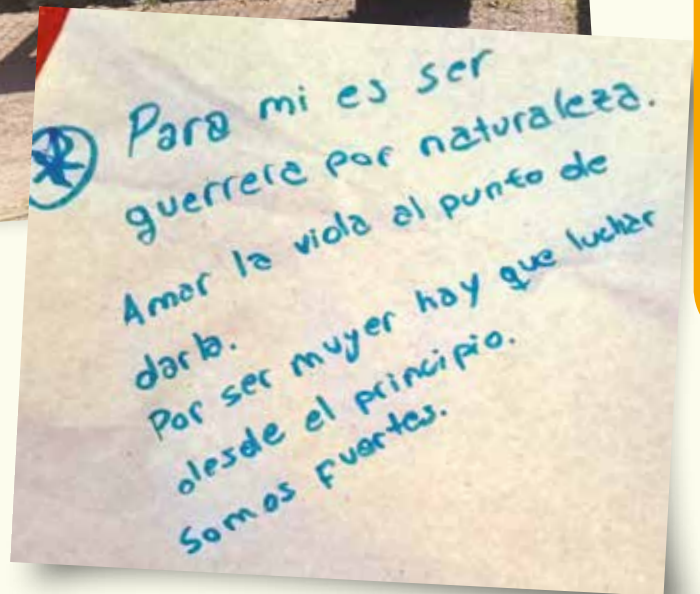 Para mi es ser
guerrera por naturaleza.
Amar la vida al punto de
darla.
Por ser muyer hay que luchar
desde el principio.
Somos fuertes.